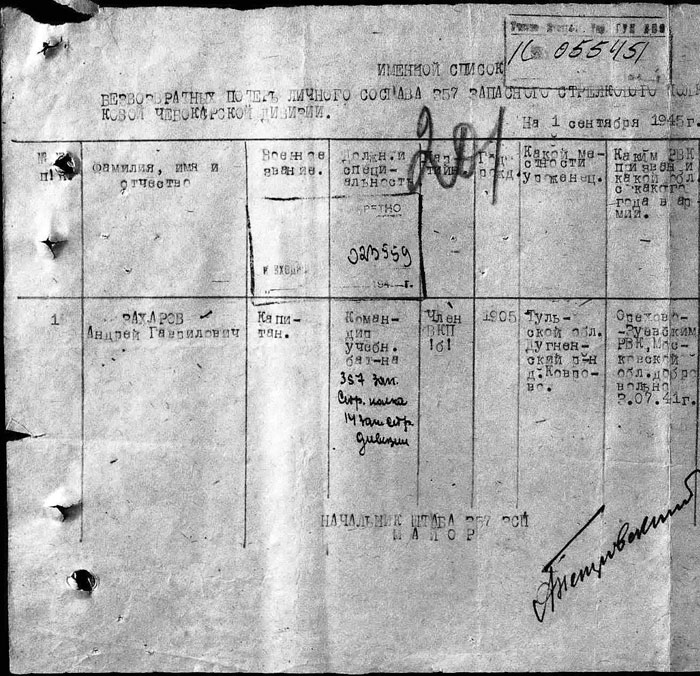 16 055451
ИМЕННОЙ СПИСОК
БЕЗВОЗВРАТНЫХ ПОТЕРЬ ЛИЧНОГО СОСТАВА 357 ЗАПАСНОГО СТРЕЛКОВОГО
КОВОЙ ЧЕБОКАРСКОЙ ДИВИЗИИ.
На 1 сентября 1945г.
201
фамилия, имя и
отчество
Военное
звание.
Должн. и
специ-
альность
Какой ме-
стности
уроженец.
Каким РВК
призван и
какой обл.
с какого
года в ар-
мии.
023559
и входн.
194 г.
1
ЗАХАРОВ
Андрей Гаврилович
Капи-
тан.
Коман-
дир
учебн.
бат-на
357 зап.
Стр. полка
14 зап стр.
дивизии
Член
ВКП
!б!
1905
Туль-
ской обл.
Дугнен-
ский р-н
д. Ковро-
во.
Орехово-
-Зуевским
РВК, Мос-
ковской
обл. добро-
вольно
2.07.41г.
НАЧАЛЬНИК ШТАБА 357 ЗСП
МАЙОР